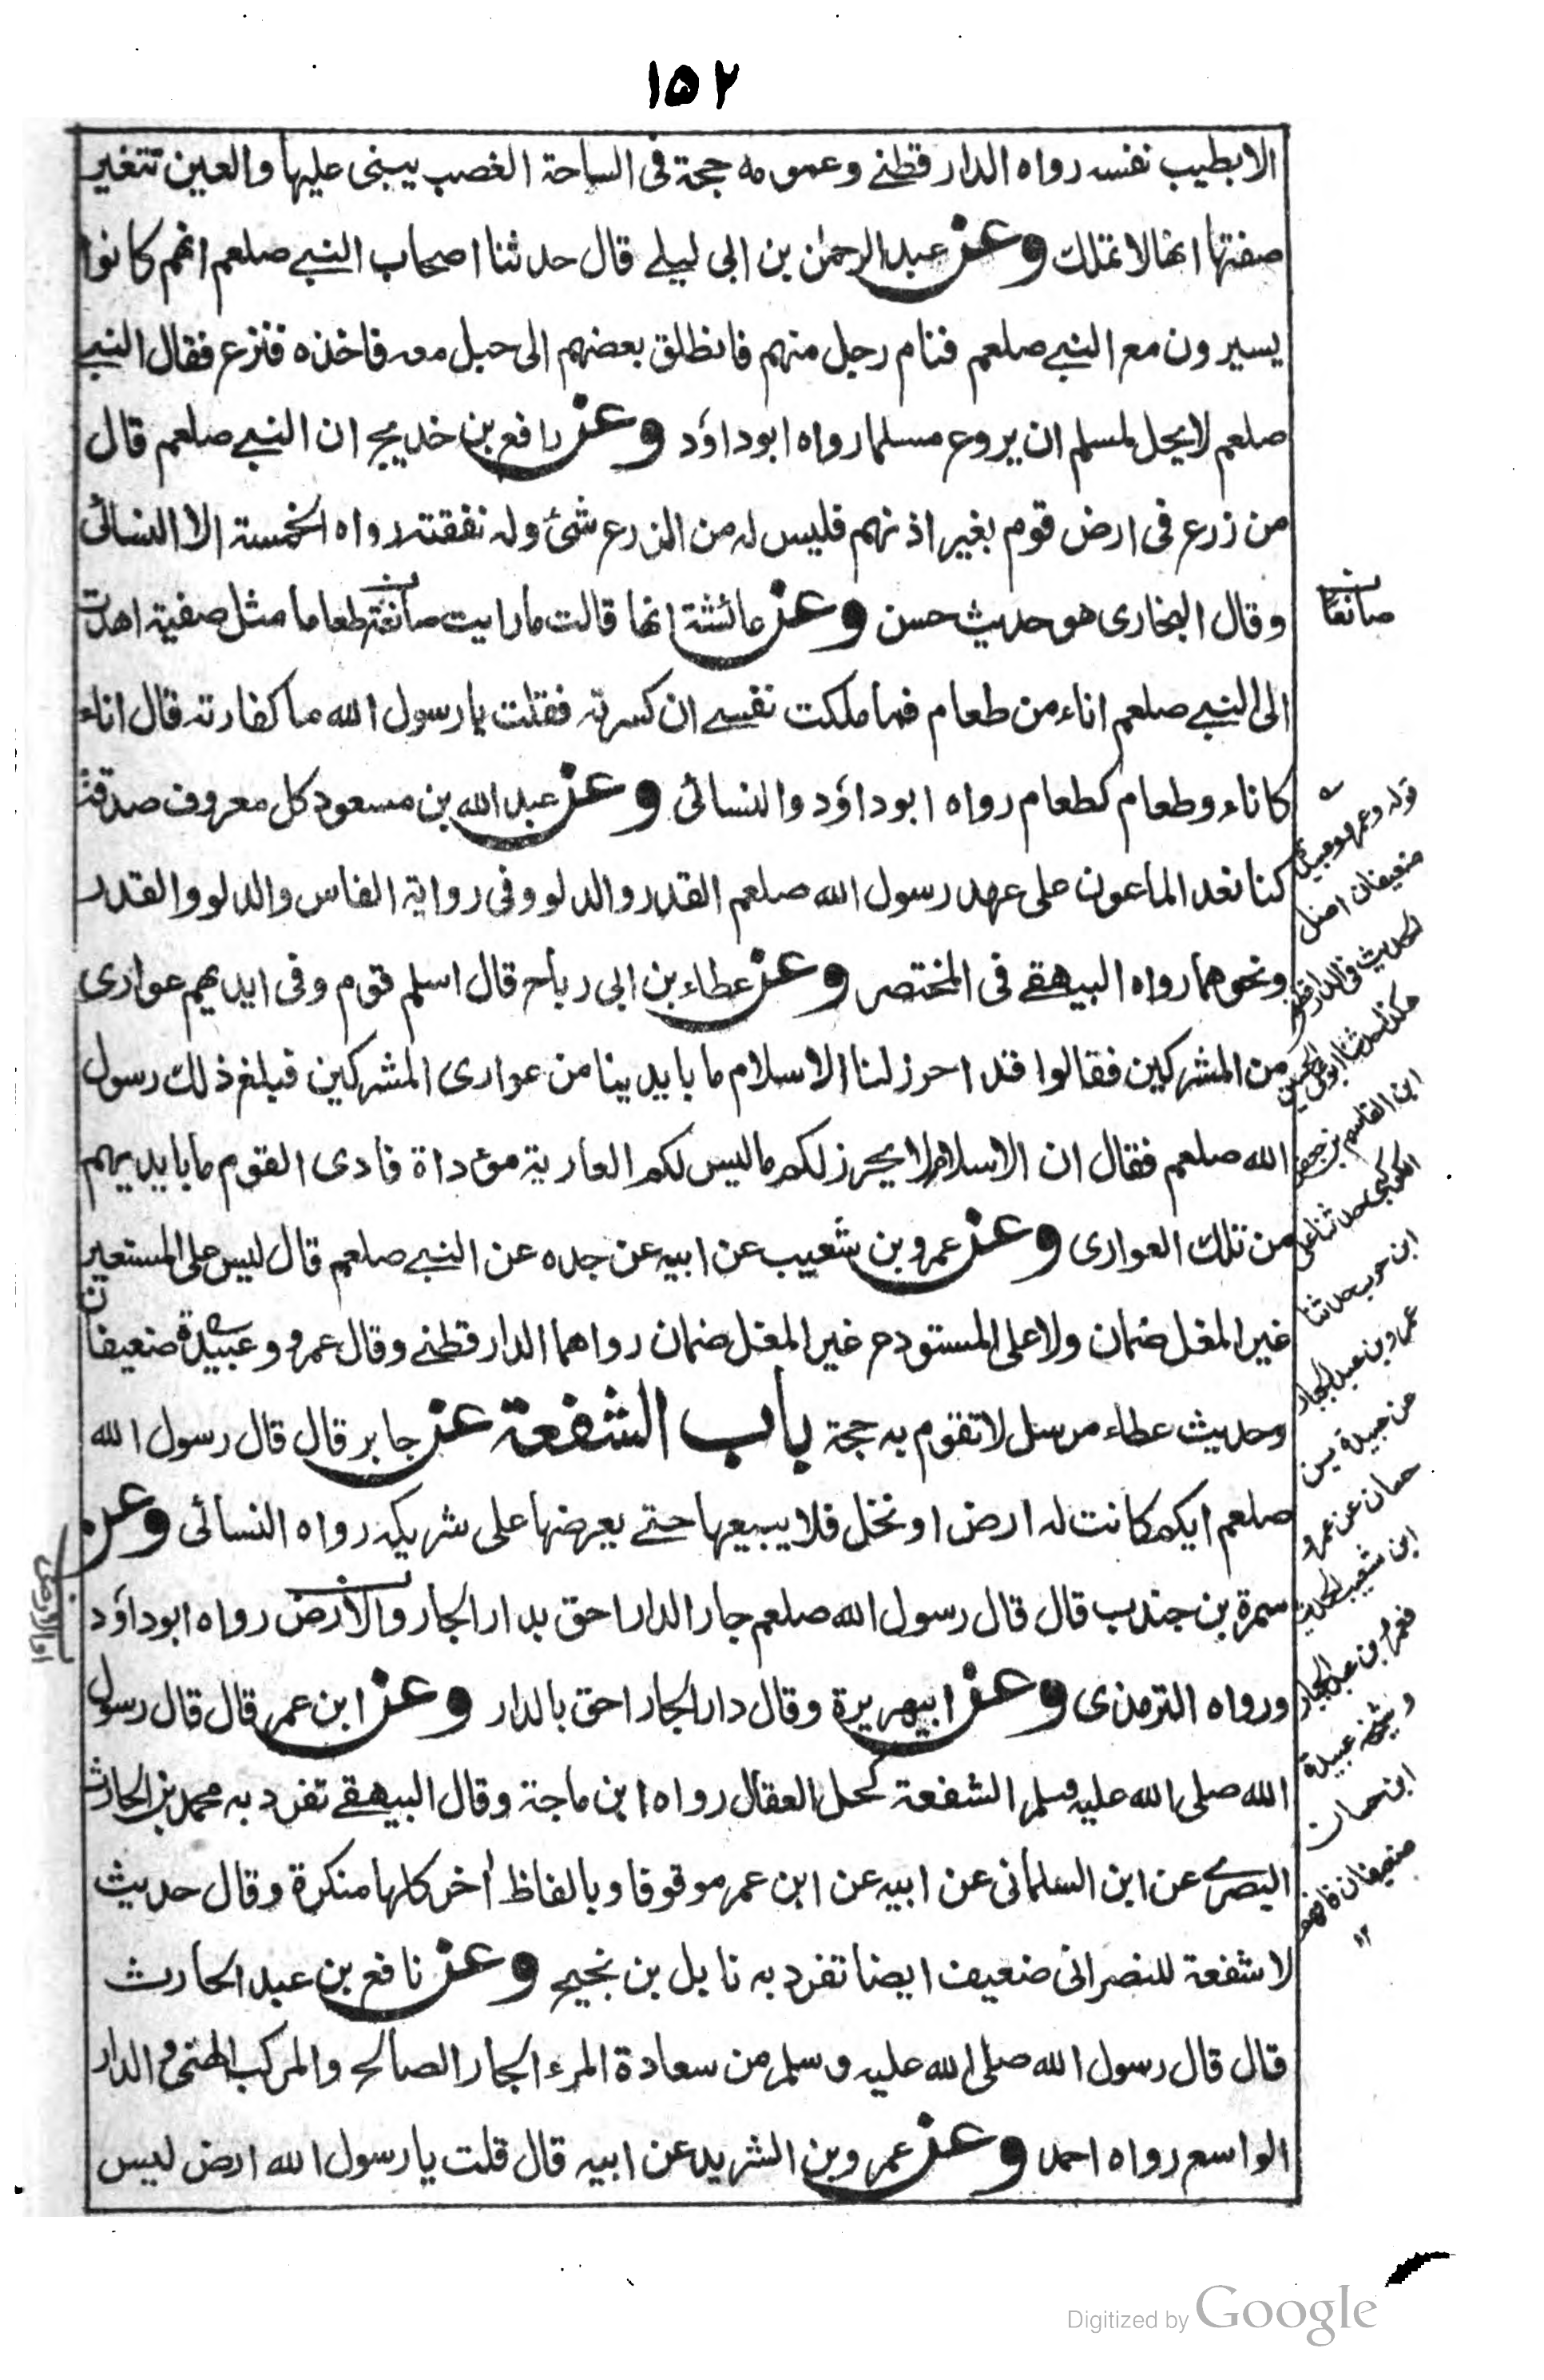 ١٥٢
الا بطيب نفسه رواه الدار قطنے وعمومه حجة فى الساحة الغصب يبنى عليها والعين تتغير
صفتها انها لا تملك وعن عبد الرحمٰن بن ابى ليلے قال حدثنا اصحاب النبے صلعم انهم كانوا
يسيرون مع النبے صلعم فنام رجل منهم فانطلق بعضهم الى حبل معه فاخذه ففزع فقال النبے
صلعم لا يحل لمسلم ان يروع مسلما رواه ابو داؤد وعن رافع بن خديج ان النبے صلعم قال
من زرع فى ارض قوم بغير اذنهم فليس له من الزرع شئ وله نفقته رواه الخمسة الا النسائى
وقال البخارى هو حديث حسن وعن عائشة انها قالت ما رايت صانعة طعاما مثل صفية اهدت
صانعًا
الى النبے صلعم اناء من طعام فما ملكت نفسے ان كسرته فقلت يا رسول الله ما كفارته قال اناء
كاناء وطعام كطعام رواه ابو داؤد والنسائى وعن عبد الله بن مسعود كل معروف صدقة
كنا نعد الماعون على عهد رسول الله صلعم القدر والدلو وفى رواية الفاس والدلو والقدر
ونحوهما رواه البيهقے فى المختصر وعن عطاء بن ابى رباح قال اسلم قوم وفى ايديهم عوارى
من المشركين فقالوا قد احرز لنا الاسلام ما بايدينا من عوارى المشركين فبلغ ذلك رسول
الله صلعم فقال ان الاسلام لا يحرز لكم ما ليس لكم العارية مؤداة فادى القوم ما بايديهم
من تلك العوارى وعن عمرو بن شعيب عن ابيه عن جده عن النبے صلعم قال ليس على المستعير
غير المغل ضمان ولا على المستودع غير المغل ضمان رواهما الدار قطنے وقال عمرو وعبيدة ضعيفان
وحديث عطاء مرسل لا تقوم به حجة باب الشفعة عن جابر قال قال رسول الله
صلعم ايكم كانت له ارض او نخل فلا يبيعها حتے يعرضها على شريكه رواه النسائى وعن
سمرة بن جندب قال قال رسول الله صلعم جار الدار احق بدار الجار والارض رواه ابو داؤد
ورواه الترمذى وعن ابيهريرة وقال دار الجار احق بالدار وعن ابن عمر قال قال رسول
الله صلى الله عليه وسلم الشفعة كحل العقال رواه ابن ماجة وقال البيهقے تفرد به محمد بن الحارث
البصرے عن ابن السلمانى عن ابيه عن ابن عمر موقوفا وبالفاظ أخر كلها منكرة وقال حديث
لا شفعة للنصرانى ضعيف ايضا تفرد به نابل بن نجيح وعن نافع بن عبد الحارث
قال قال رسول الله صلى الله عليه وسلم من سعادة المرء الجار الصالح والمركب الهنى والدار
الواسع رواه احمد وعن عمرو بن الشريد عن ابيه قال قلت يا رسول الله ارض ليس
قوله وعمرو وعبيدة
ضعيفان اصل
الحديث فى الدار قطنے
هكذا حدثنا ابو على الحسين
ابن القاسم بن جعفر
الكوكبى حدثنا على
ابن حرب حدثنا
عمرو بن عبد الجبار
عن عبيدة بن
حسان عن عمرو
ابن شعيب الحديث
فعمرو بن عبد الجبار
وشيخه عبيدة
ابن حسان
ضعيفان فافهم
١٢
Digitized by Google